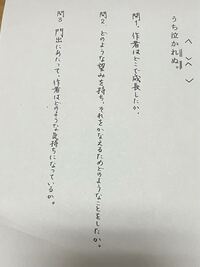 うち泣かれぬ。
問1、作者はどこで成長したか。
問2 どのような望みを持ち、それをかなえるためどのようなことをしたか。
問3 門出にあたって、作者はどのような気持ちになっているか。